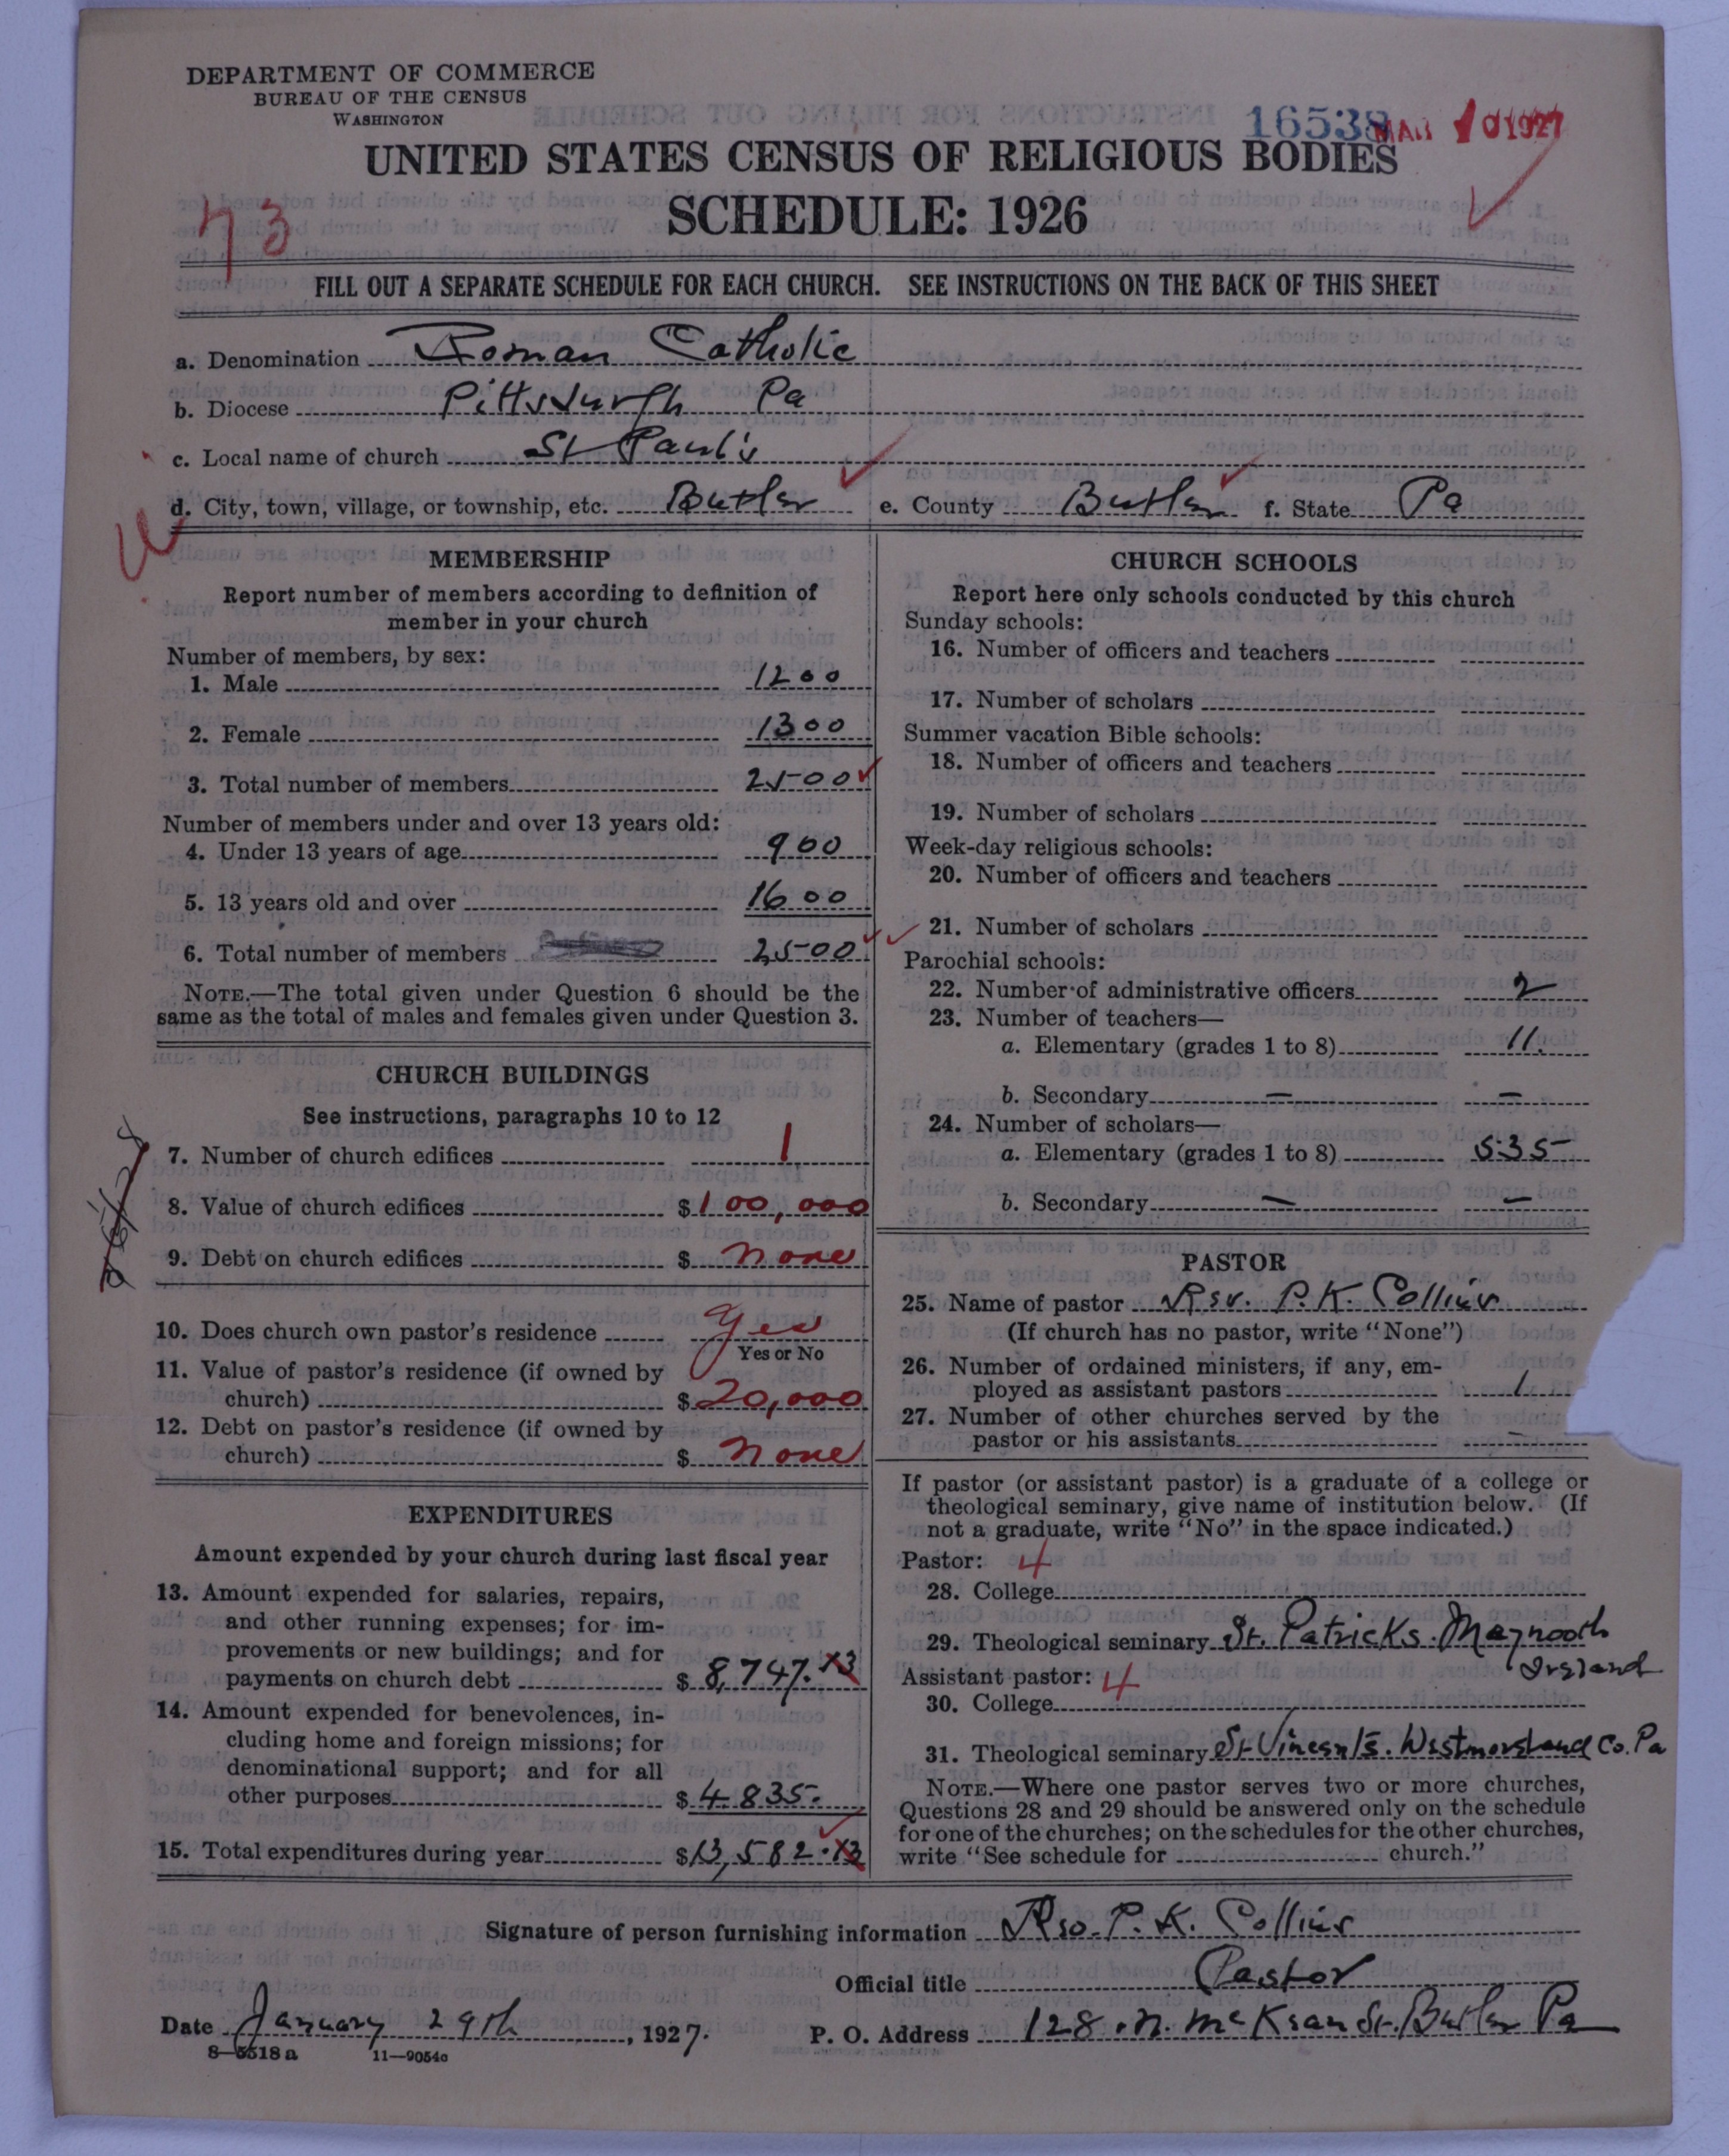 DEPARTMENT OF COMMERCE
BUREAU OF THE CENSUS
WASHINGTON
16538 MAR 10 1927
UNITED STATES CENSUS OF RELIGIOUS BODIES
SCHEDULE: 1926
73
FILL OUT A SEPARATE SCHEDULE FOR EACH CHURCH. SEE INSTRUCTIONS ON THE BACK OF THIS SHEET
a. Denomination Roman Catholic
b. Diocese Pittsburgh Pa
c. Local name of church St Paul's
d. City, town, village, or township, etc. Butler e. County Butler f. State Pa
MEMBERSHIP
Report number of members according to definition of
member in your church
Number of members, by sex:
1. Male 1200
2. Female 1300
3. Total number of members 2500
Number of members under and over 13 years old:
4. Under 13 years of age 900
5. 13 years old and over 1600
6. Total number of members 2500
NOTE.—The total given under Question 6 should be the
same as the total of males and females given under Question 3.
CHURCH BUILDINGS
See instructions, paragraphs 10 to 12
7. Number of church edifices 1
8. Value of church edifices $100,000
9. Debt on church edifices $ none
10. Does church own pastor's residence yes
Yes or No
11. Value of pastor's residence (if owned by
church) $20,000
12. Debt on pastor's residence (if owned by
church) $ none
EXPENDITURES
Amount expended by your church during last fiscal year
13. Amount expended for salaries, repairs,
and other running expenses; for im-
provements or new buildings; and for
payments on church debt $8,747.13
14. Amount expended for benevolences, in-
cluding home and foreign missions; for
denominational support; and for all
other purposes $4835.
15. Total expenditures during year $13,582.13
CHURCH SCHOOLS
Report here only schools conducted by this church
Sunday schools:
16. Number of officers and teachers
17. Number of scholars
Summer vacation Bible schools:
18. Number of officers and teachers
19. Number of scholars
Week-day religious schools:
20. Number of officers and teachers
21. Number of scholars
Parochial schools:
22. Number of administrative officers 2
23. Number of teachers—
a. Elementary (grades 1 to 8) 11.
b. Secondary — —
24. Number of scholars—
a. Elementary (grades 1 to 8) 535
b. Secondary — —
PASTOR
25. Name of pastor Rev. P. K. Collins
(If church has no pastor, write "None")
26. Number of ordained ministers, if any, em-
ployed as assistant pastors 1
27. Number of other churches served by the
pastor or his assistants —
If pastor (or assistant pastor) is a graduate of a college or
theological seminary, give name of institution below. (If
not a graduate, write "No" in the space indicated.)
Pastor: 4
28. College
29. Theological seminary St. Patricks. Maynooth
Ireland
Assistant pastor: 4
30. College
31. Theological seminary St Vincents. Westmoreland Co. Pa
NOTE.—Where one pastor serves two or more churches,
Questions 28 and 29 should be answered only on the schedule
for one of the churches; on the schedules for the other churches,
write "See schedule for church."
Signature of person furnishing information Rev. P. K. Collins
Official title Pastor
Date January 29th, 1927. P. O. Address 128. N. McKean St. Butler Pa
8—5518 a 11—9054c